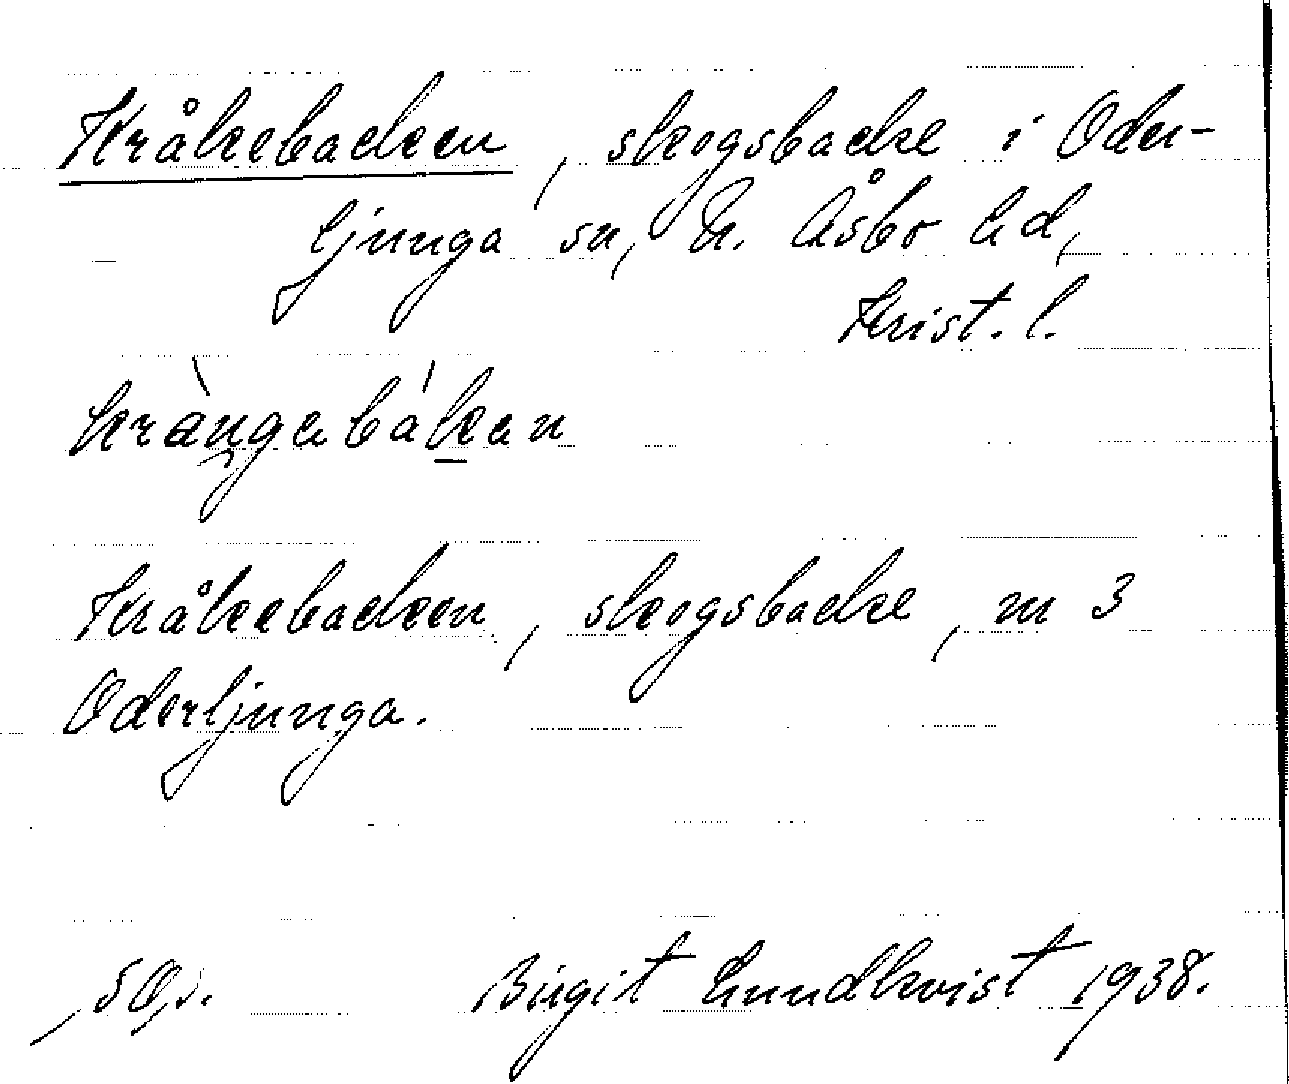 Kråkebacken, skogsbacke i Oder-
ljunga sn, N. Åsbo hd,
Krist. l.
kràngabákan
Kråkebacken, skogsbacke, m 3
Oderljunga.
Birgit Lundkvist 1938.